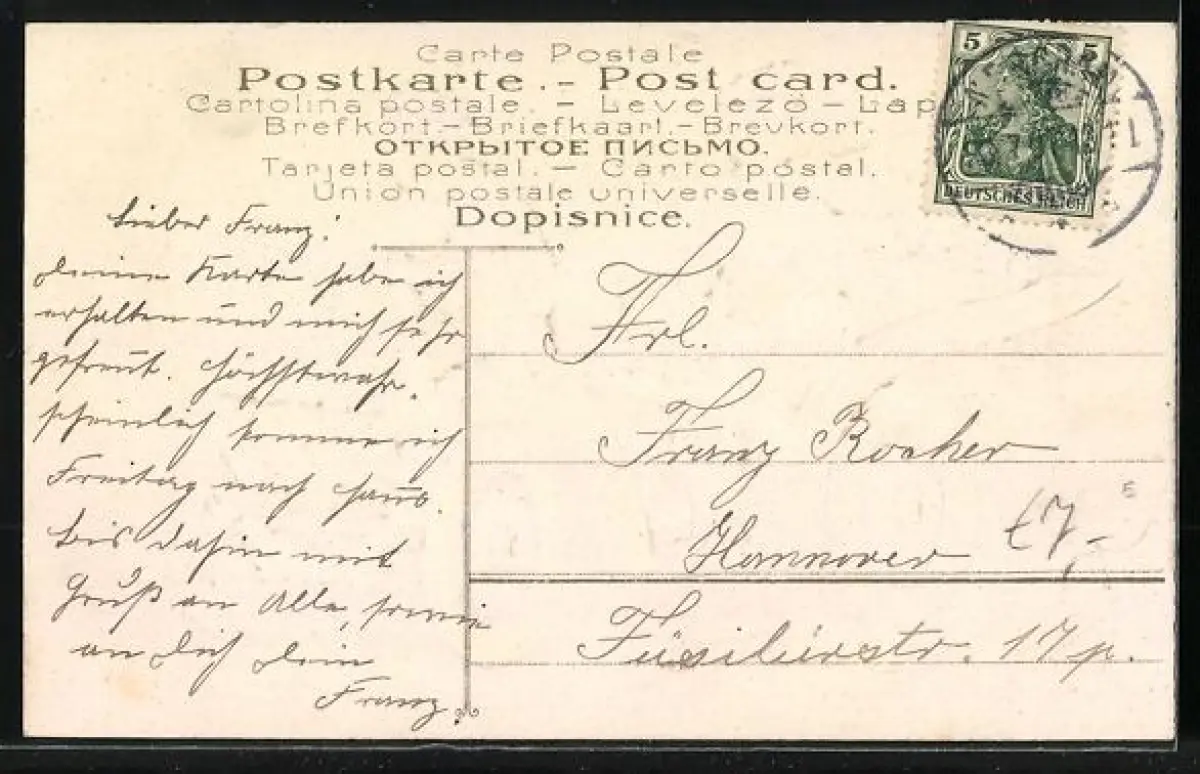 Carte Postale
Postkarte. - Post card.
Cartolina postale. - Levelező - Lap
Brefkort - Briefkaart. - Brevkort.
ОТКРЫТОЕ ПИСЬМО.
Tarjeta postal. - Carto postal.
Union postale universelle.
Dopisnice.
5 5
DEUTSCHES REICH
Lieber Franz!
deine Karte habe ich
erhalten und mich sehr
gefreut. Höchstwahr-
scheinlich komme ich
Freitag nach Haus.
bis dahin mit
Gruß an Alle, sowie
an dich dein
Franz.
Frl.
Franz Rocher
Hannover
Füsilierstr. 17 p.
E